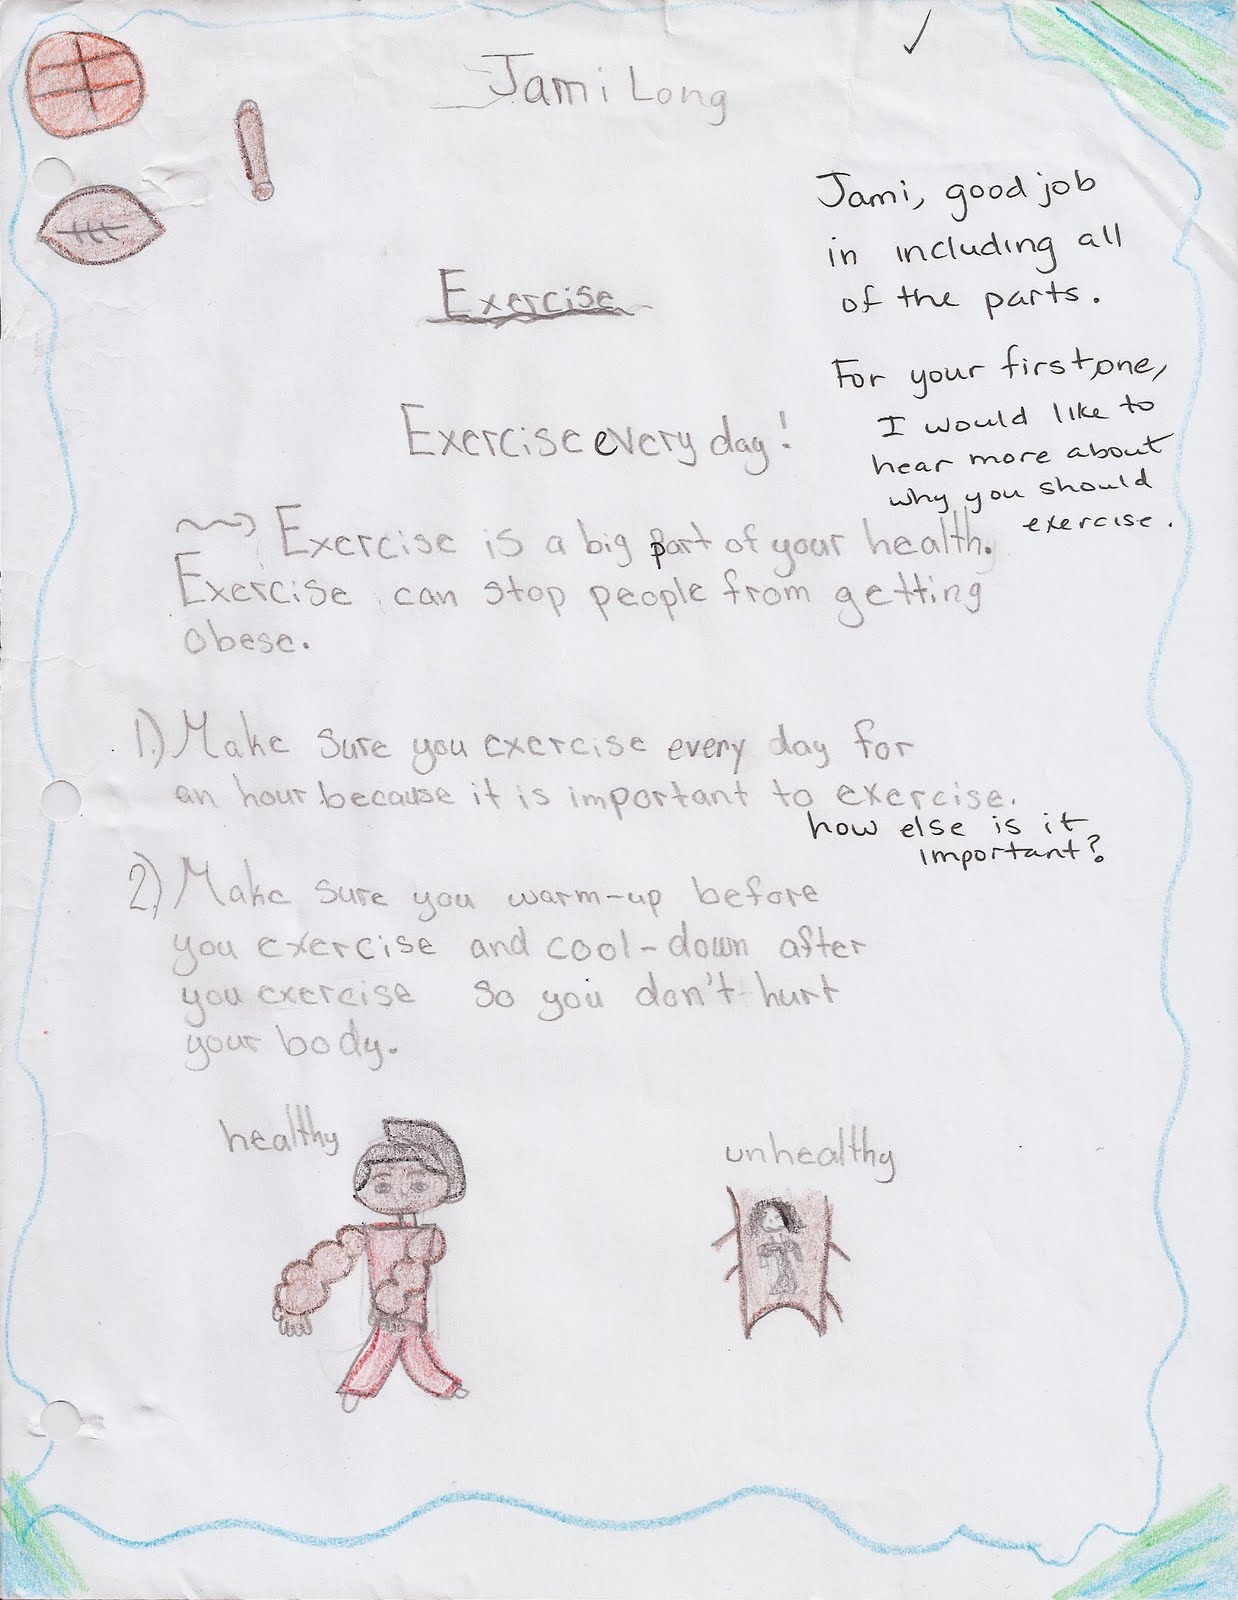 Jami Long
Jami, good job
in including all
of the parts.
Exercise
For your first one,
I would like to
hear more about
why you should
exercise.
Exercise every day!
Exercise is a big part of your health.
Exercise can stop people from getting
obese.
1.) Make sure you exercise every day for
an hour because it is important to exercise.
how else is it
important?
2.) Make sure you warm-up before
you exercise and cool-down after
you exercise so you don't hurt
your body.
healthy
unhealthy